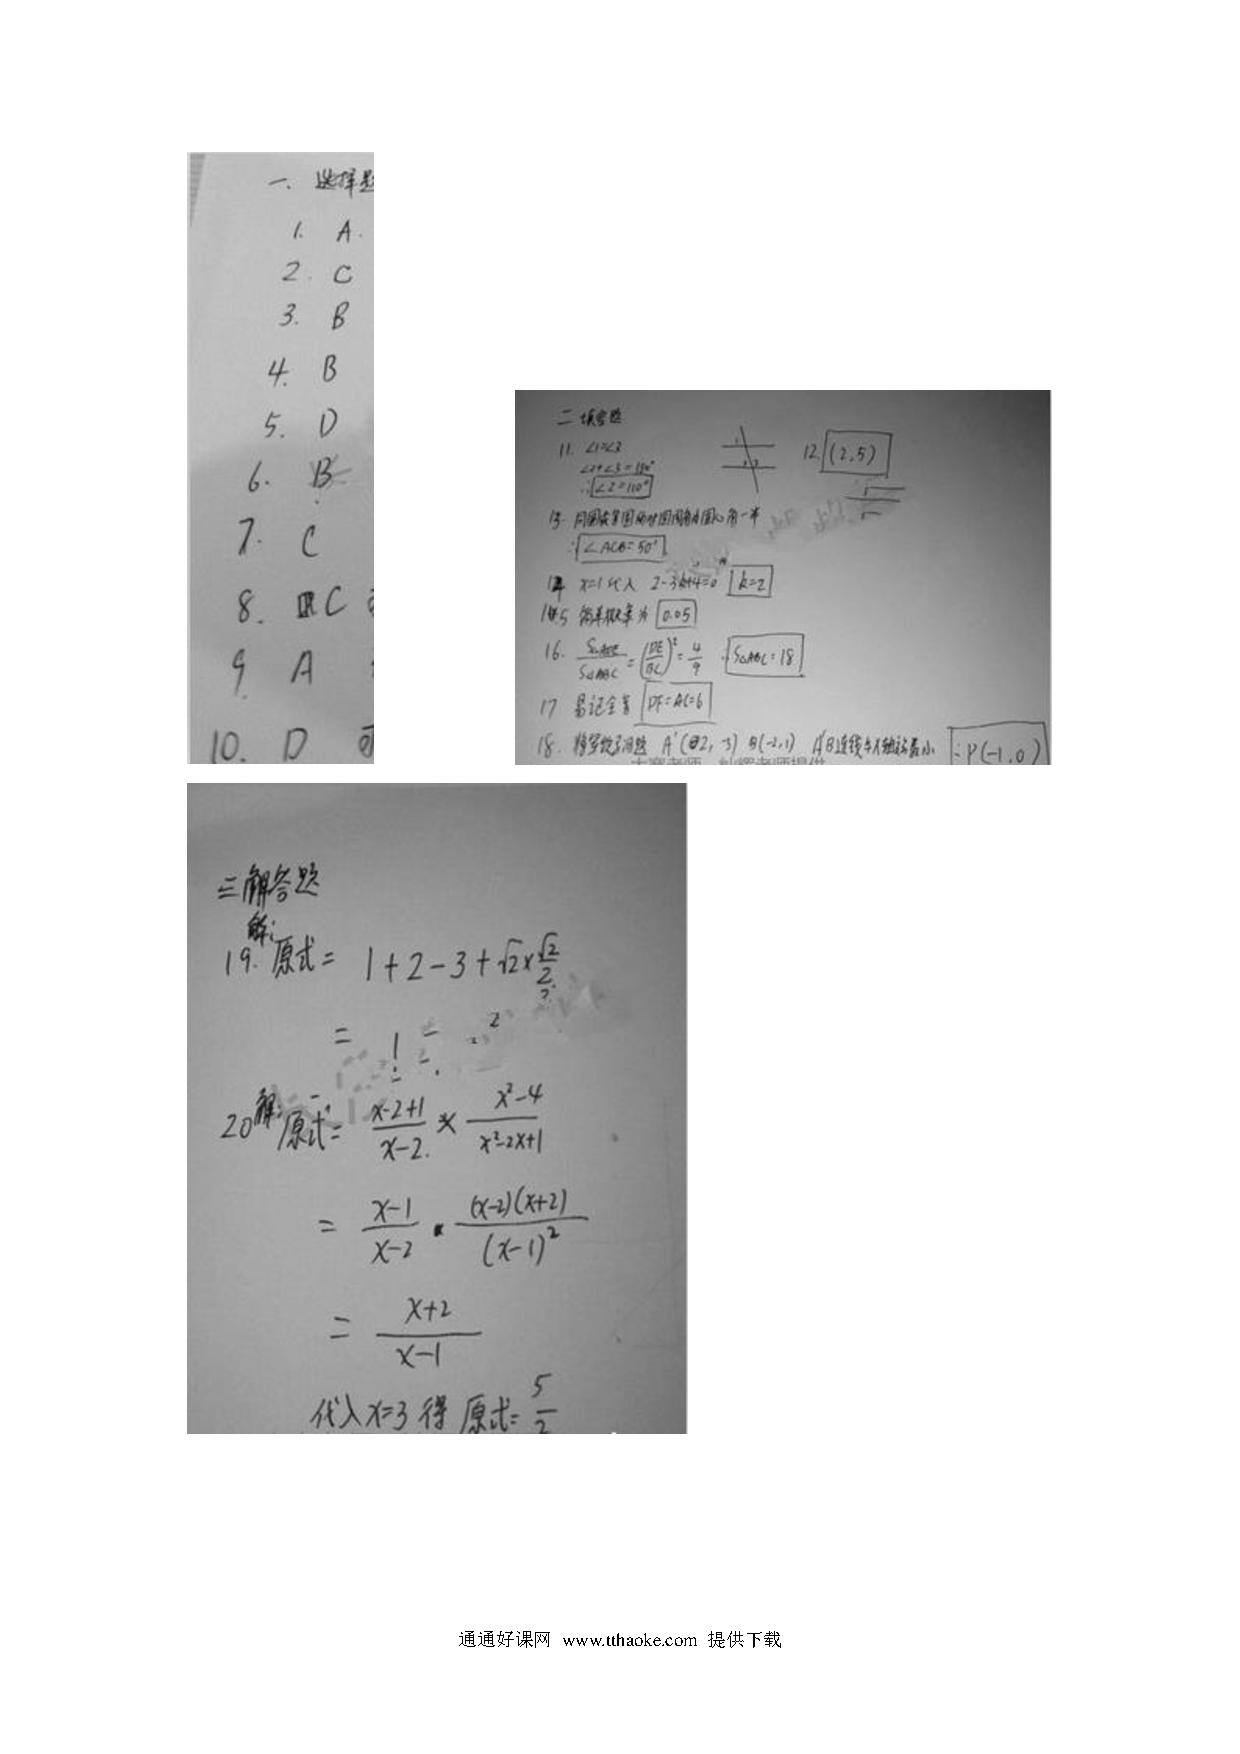 一、选择题
1. A.
2. C
3. B
4. B
5. D
6. B
7. C
8. C
9. A
10. D
二 填空题
11. ∠1=∠3
∠2+∠3=180°
∴∠2=110°
12. (2,5)
∴∠ACB=50°
14 x=1代入 2-3k+4=0 k=2
15 简单概率为 0.05
16. S△ADE/S△ABC=(DE/BC)²=4/9 S△ABC=18
17 易证全等 DF=AC=6
18. A'(2,-3) B(-2,1) A'B连线与X轴 最小 ∴P(-1,0)
三解答题
解:
19. 原式= 1+2-3+√2×√2/2
= 1
20 解: 原式= (x-2+1)/(x-2) × (x²-4)/(x²-2x+1)
= (x-1)/(x-2) · (x-2)(x+2)/(x-1)²
= (x+2)/(x-1)
代入x=3得 原式=5/2
通通好课网 www.tthaoke.com 提供下载